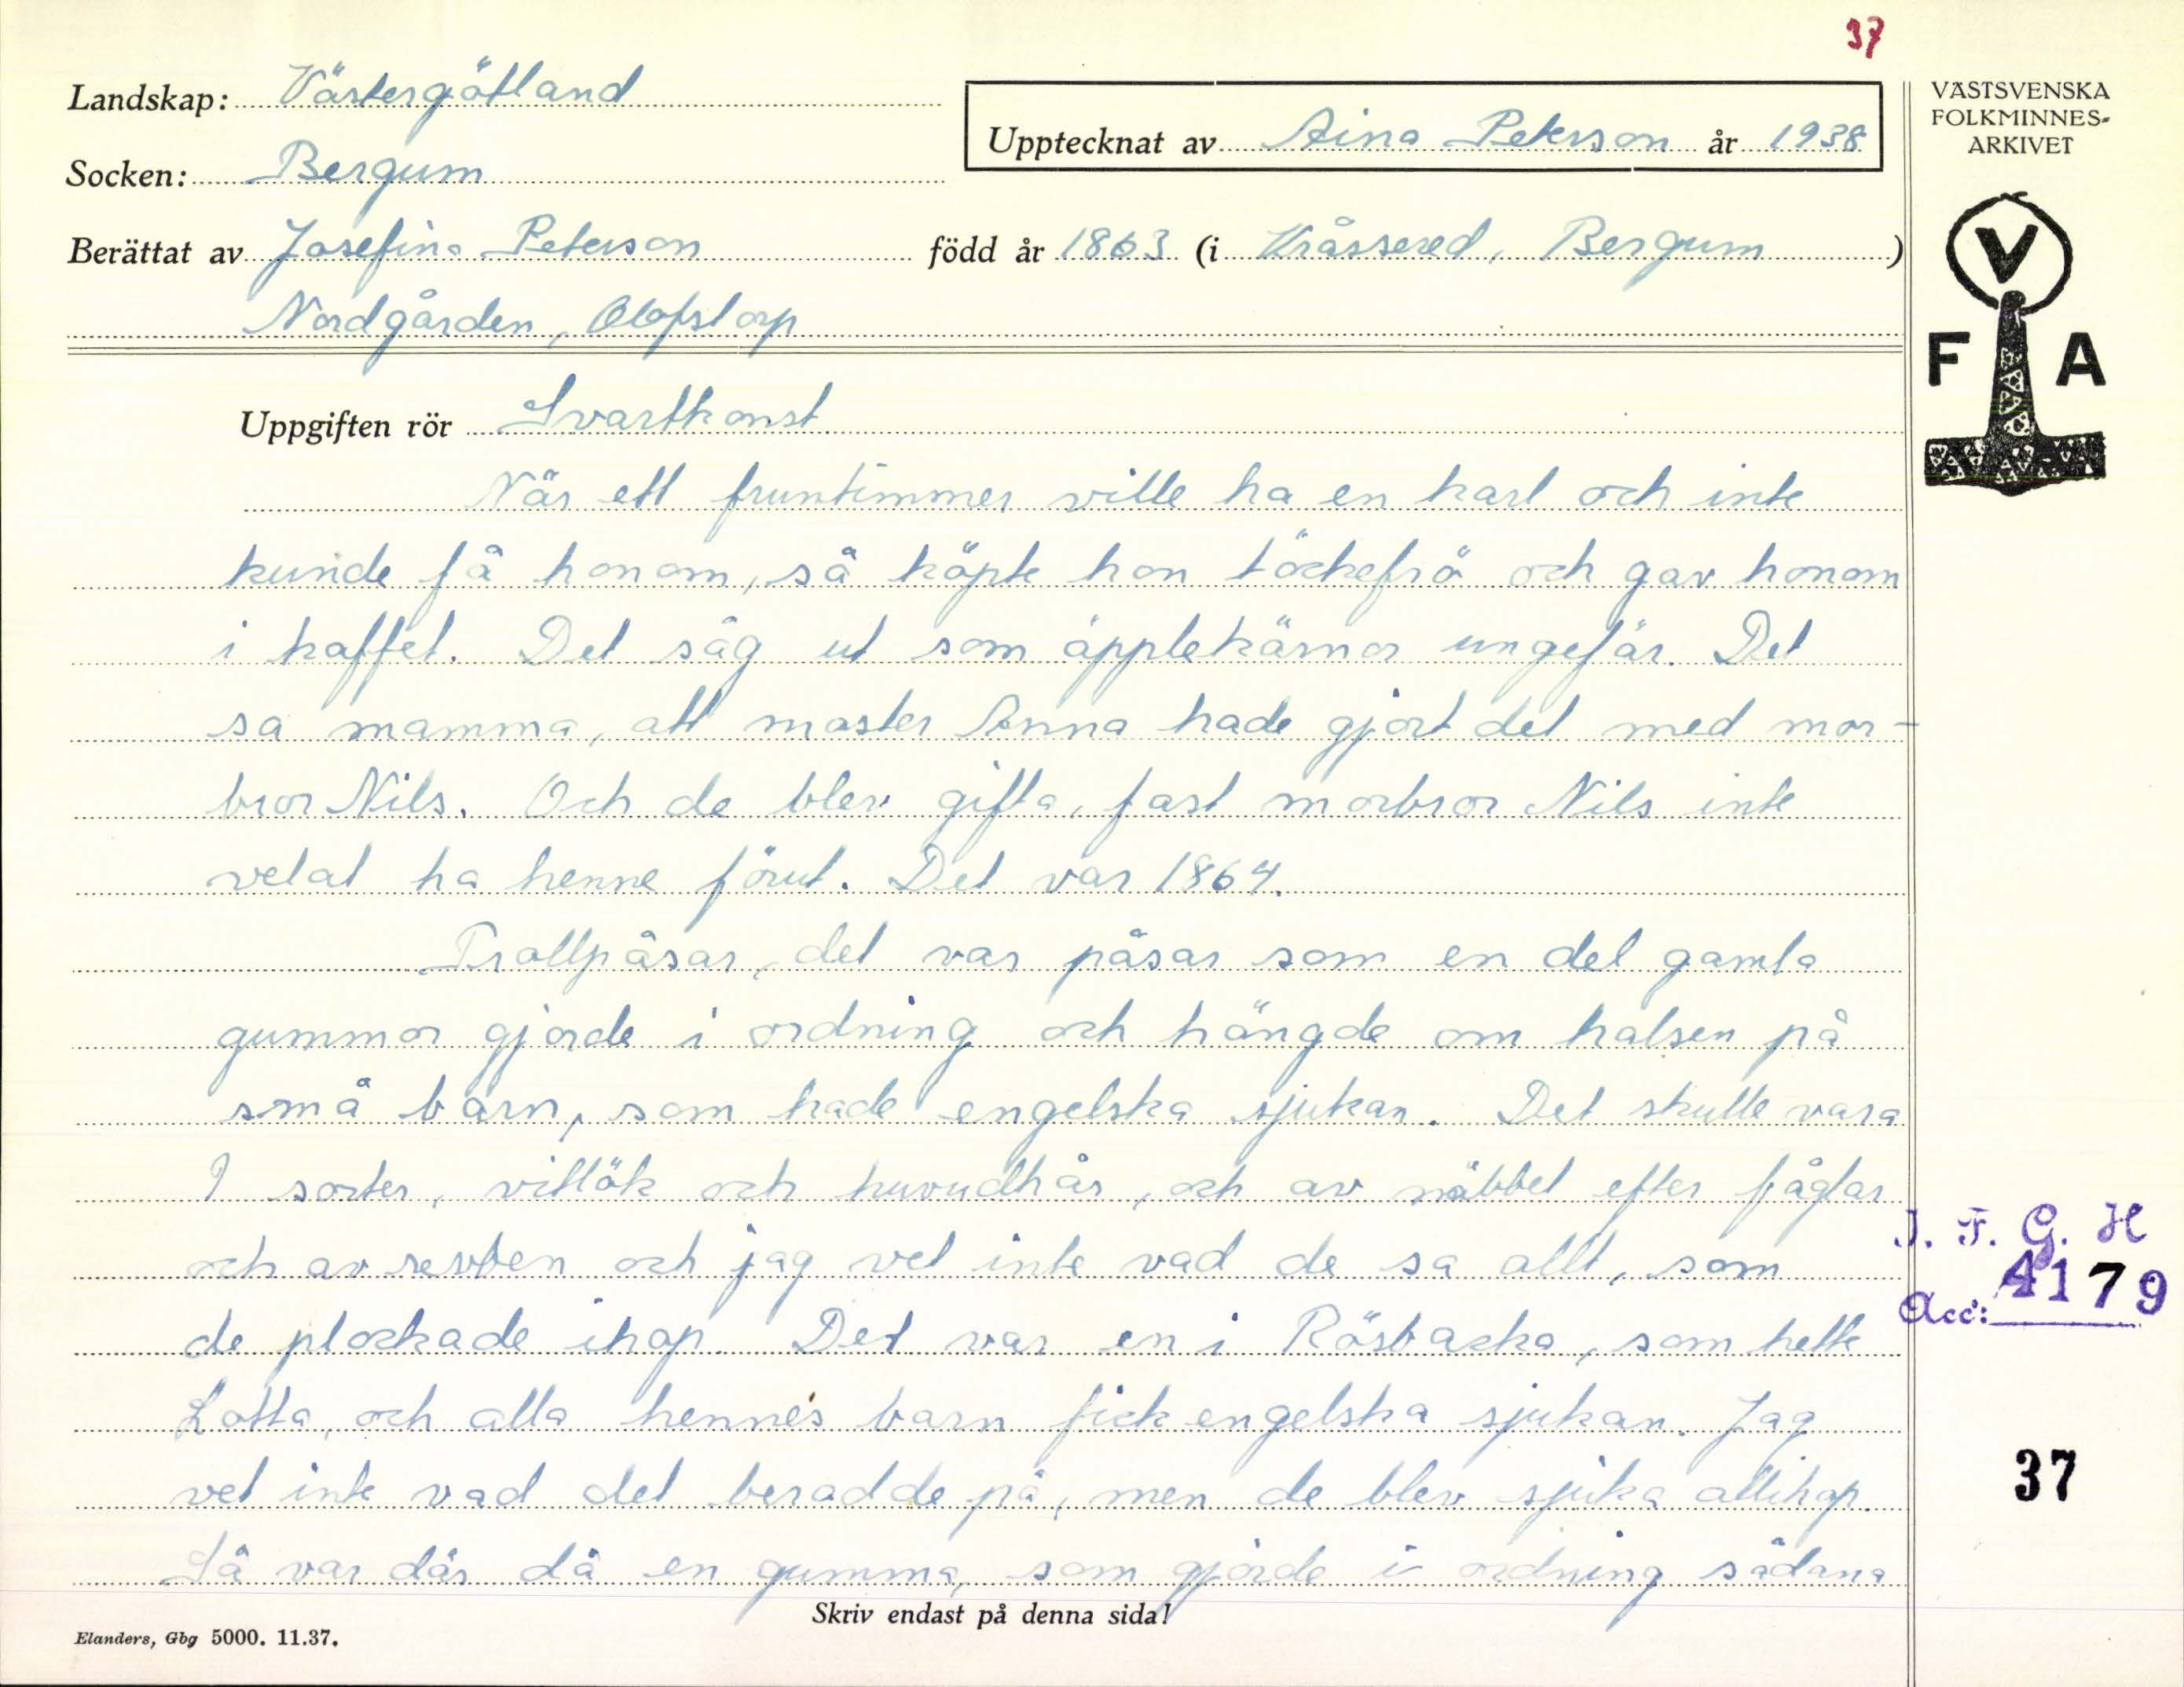 37
Landskap: Västergötland
Upptecknat av Aina Peterson år 1938
VÄSTSVENSKA
FOLKMINNES-
ARKIVET
Socken: Bergum
Berättat av Josefina Peterson född år 1863 (i Kråssered, Bergum)
Nordgården, Olofstorp
V
F A
Uppgiften rör Svartkonst.
När ett fruntimmer ville ha en karl och inte
kunde få honom, så köpte hon töckefrö och gav honom
i kaffet. Det såg ut som äpplekärnor ungefär. Det
sa mamma, att moster Anna hade gjort det med mor-
bror Nils. Och de blev gifta, fast morbror Nils inte
velat ha henne förut. Det var 1864.
Trollpåsar, det var påsar som en del gamla
gummor gjorde i ordning och hängde om halsen på
små barn, som hade engelska sjukan. Det skulle vara
9 sorter, vitlök och huvudhår, och av näbbet efter fåglar
och av revben och jag vet inte vad de sa allt, som
de plockade ihop. Det var en i Rösbacka, som hette
Lotta, och alla hennes barn fick engelska sjukan. Jag
vet inte vad det beradde på, men de blev sjuka allihop.
Så var där då en gumma, som gjorde i ordning sådana
J. F. G. H
Acc: 4179
37
Skriv endast på denna sida!
Elanders, Gbg 5000. 11.37.